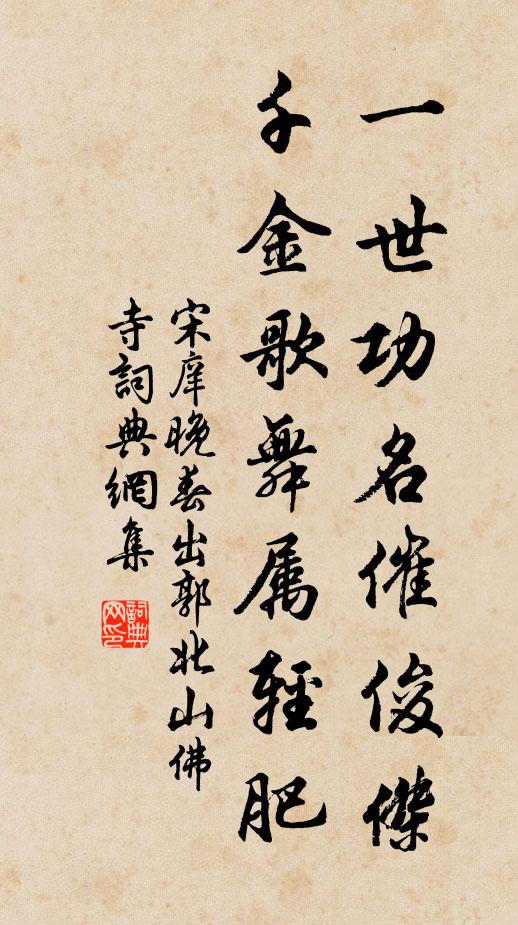 一世功名催俊傑
千金歌舞属輕肥
宋庠晚春出郭北山佛
寺詞典網集
詞典网印